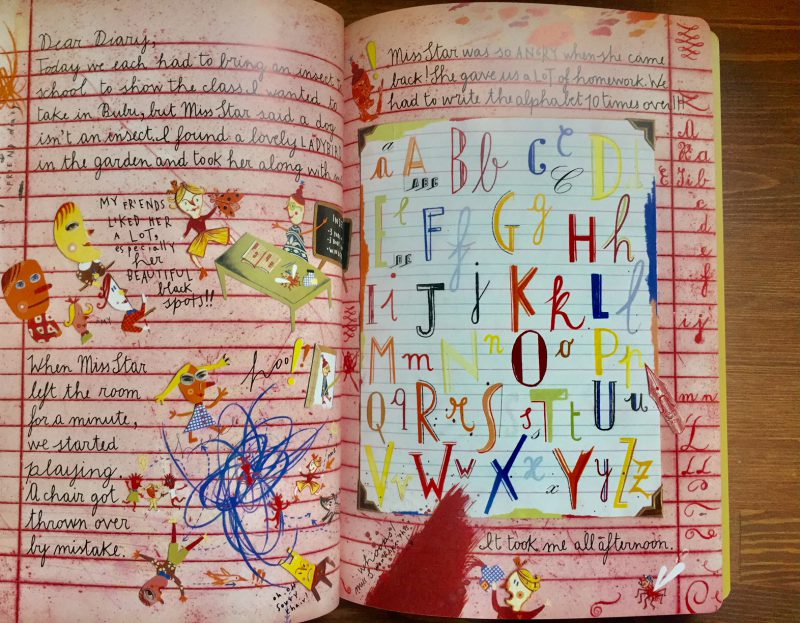 Dear Diary,
Today we each had to bring an insect
school to show the class. I wanted to
take in Bubu, but Miss Star said a dog
isn't an insect. I found a lovely LADYBIRD
in the garden and took her along with
MY FRIENDS
LIKED HER
A LOT,
especially
her
BEAUTIFUL
black
SPOTS!!
When Miss Star
left the room
for a minute,
we started
playing.
A chair got
thrown over
by mistake.
Miss Star was so ANGRY when she came
back! She gave us a LOT of homework. We
had to write the alphabet 10 times over!!!
a A B b C c C D
ABC
E e F f G g H h
I i J j K k L l
M m N n O o P p
Q q R r S s s T t U u
V v W w X x x Y y Z z
It took me all afternoon.